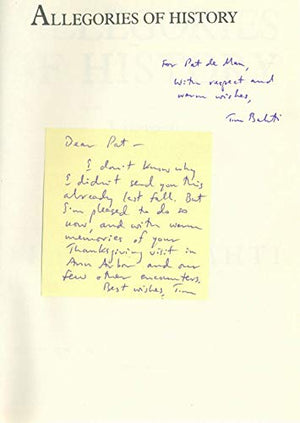 ALLEGORIES OF HISTORY
For Pat de Man,
with respect and
warm wishes,
Tim Bahti
Dear Pat –
I don't know why
I didn't send you this
already last fall. But
I'm pleased to do so
now, and with warm
memories of your
Thanksgiving visit in
Ann Arbor and our
few other encounters.
Best wishes, Tim